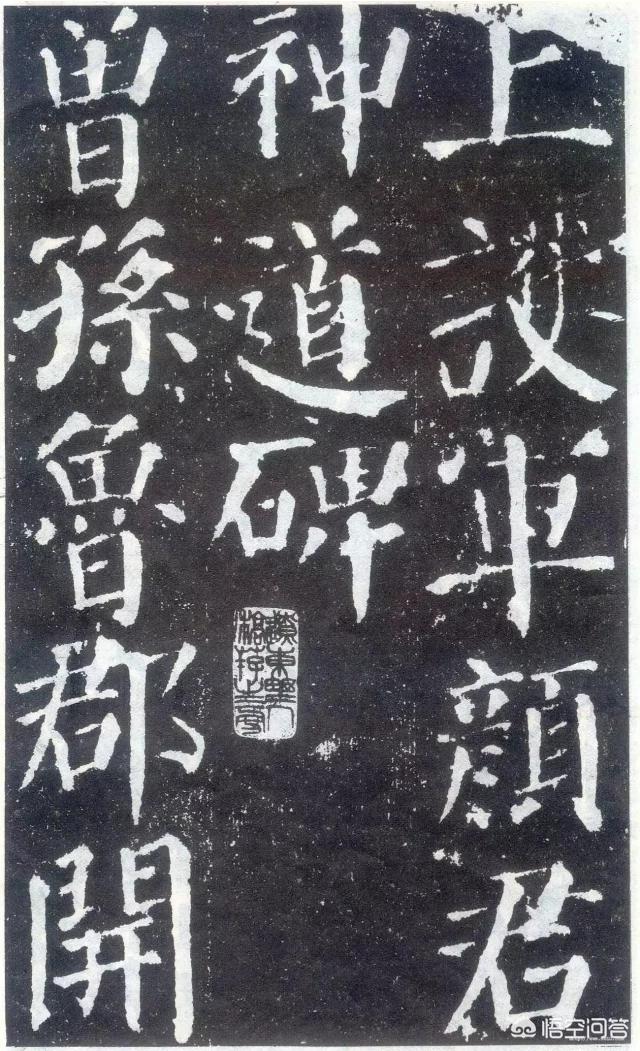 上護軍顏君
神道碑
曾孫魯郡開
悟空问答